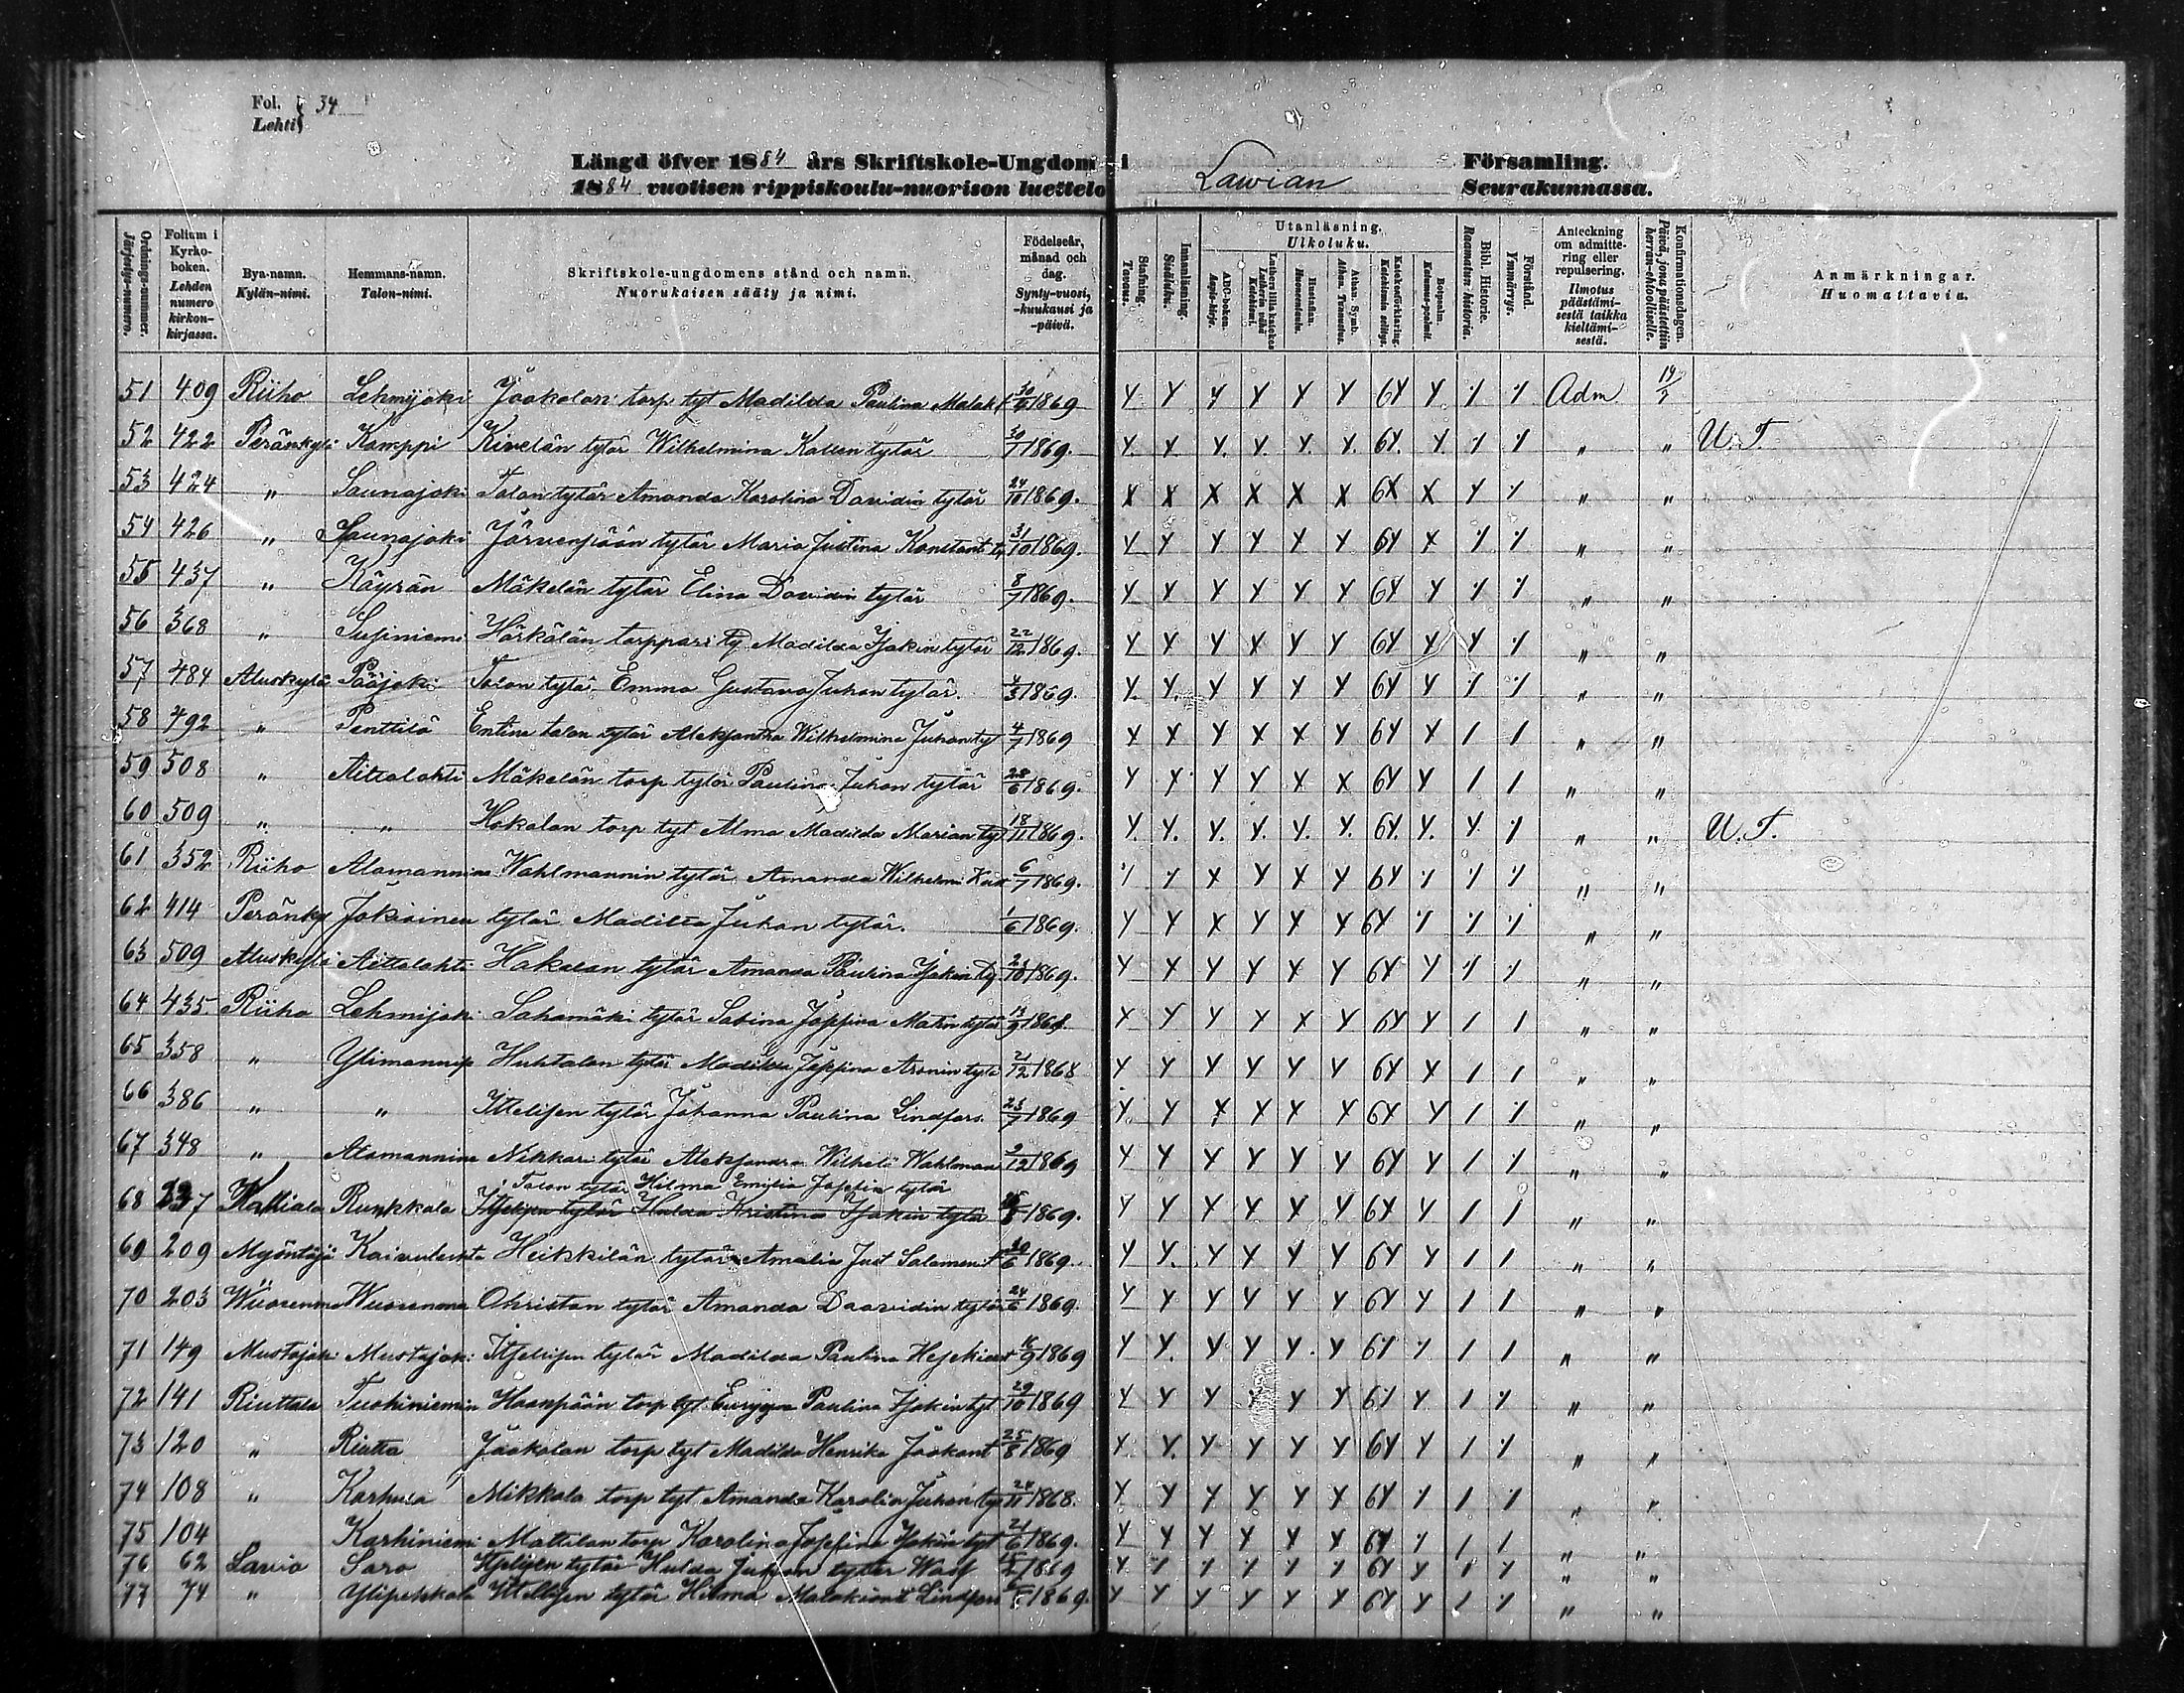 Fol. 34
Lehti
Längd öfver 1884 års Skriftskole-Ungdom i Församling.
1884 vuotisen rippiskoulu-nuorison luettelo Lawian Seurakunnassa.
Ordnings-nummer. Järjestys-numero.
Folium i Kyrko-boken. Lehden numero kirkon-kirjassa.
Bya-namn. Kylän-nimi.
Hemmans-namn. Talon-nimi.
Skriftskole-ungdomens stånd och namn. Nuorukaisen sääty ja nimi.
Födelseår, månad och dag. Synty-vuosi, -kuukausi ja -päivä.
Stafning. Tavaus.
Innanläsning. Sisäluku.
Utanläsning. Ulkoluku.
ABC-boken. Aapis-kirja.
Luthers lilla katekes Lutherin vähä Katekismi.
Hustaflan. Huoneentaulu.
Athan. Symb. Athan. Tunnustus.
Katekesförklaring. Katekismin selitys.
Botpsalm. Katumus-psalmi.
Bibl. Historie. Raamatun historia.
Förstånd. Ymmärrys.
Anteckning om admitte-ring eller repulsering. Ilmotus päästämi-sestä taikka kieltämi-sestä.
Konfirmationsdagen. Päivä, jona päästettiin herran-ehtoolliselle.
Anmärkningar. Huomattavia.
51 409 Riiho Lehmijoki Jaakolan torp tyt Madilda Paulina Malak t 30/4 1869 Y Y Y Y Y Y 6Y Y Adm 19/7
52 422 Peränkylä Kamppi Kivelän tytär Wilhelmina Kallen tytär 30/7 1869. Y. Y. Y. Y. Y. Y. 6Y. Y. " " U. T.
53 424 " Saunajoki Talon tytär Amanda Karolina Davidin tytär 24/10 1869. X X X X X X 6X X Y " "
54 426 " Saunajoki Järvenpään tytär Maria Justina Konstant t 31/10 1869. Y Y Y Y Y Y 6Y X " "
55 437 " Käyrän Mäkelän tytär Elina Davidin tytär 8/7 1869. Y Y Y Y Y Y 6Y Y " "
56 368 " Susiniemi Härkälän torppari ty Madilda Isakin tytär 22/12 1869. Y Y Y Y Y Y 6Y Y Y " "
57 484 Aluskylä Pääjoki Talon tytär Emma Gustava Juhan tytär. 4/3 1869. Y. Y. Y Y Y Y 6Y Y " "
58 492 " Penttilä Entinen talon tytär Aleksantra Wilhelmina Juhan tyt 4/7 1869 X X Y X X Y 6Y X / / " "
59 508 " Aittalahti Mäkelän torp tytär Paulina Juhan tytär 28/6 1869. Y Y Y Y X X 6Y Y / / " "
60 509 " " Hakalan torp tyt Alma Madilda Marian tyt 18/11 1869. Y. Y. Y. Y. Y. Y. 6Y. Y. Y. " " U. T.
61 352 Riiho Alamannina Wahlmannin tytär Amanda Wilhelmi 6/7 1869. X Y X Y 6Y " "
62 414 Peränky Jokisinen tytär Madilda Juhan tytär. 1/6 1869. Y Y X Y X X 6Y " "
63 509 Aluskylä Aittalahti Hakalan tytär Amanda Paulina Isakin ty 23/10 1869. Y X Y Y X Y 6Y Y " "
64 435 Riiho Lehmijoki Sahamäki tytär Sabina Josefina Matin tytär 13/9 1868. Y Y Y Y X Y 6Y Y / / " "
65 358 " Ylimannis Huhtalan tytär Madilda Josefina Aronin tytä 21/12 1868 Y Y Y Y Y Y 6Y X / / " "
66 386 " " Ittelisen tytär Johanna Paulina Lindfors. 23/7 1869 Y. Y X X X X 6X Y / " "
67 348 " Alamannina Nikkari tytär Aleksandra Wilhel. Wahlman 9/12 1869 Y Y Y Y Y Y 6Y Y / " "
Talon tytär Hilma Emilia Josefin tytär
68 237 Kalliala Runkkala Itselisen tytär Hulda Kristina Isakin tytä 1869. Y Y Y Y X Y 6Y Y / / " "
69 209 Myöntäjä Kaivulahta Heikkilän tytär Amalia Just Salomon t 30/6 1869. Y Y. Y Y Y Y 6Y Y / / " "
70 203 Wuorenma Wuorenma Ohristan tytär Amanda Daavidin tytär 24/6 1869. Y Y Y Y Y Y 6Y Y / / " "
71 149 Mustajoki Mustajoki Itselisen tytär Madilda Paulina Hesekield 16/9 1869 Y Y. Y Y Y. Y 6Y / / " "
72 141 Riuttala Tuohiniemin Haanpään torp tyt Paulina Isakin tyt 29/10 1869 Y Y Y Y Y 6Y Y / " "
73 120 " Riutta Jaakolan torp tyt Madilda Henrika Jaakon t 25/8 1869 Y Y. Y Y Y Y 6Y Y / " "
74 108 " Karhuia Mikkola torp tyt Amanda Karolin Juhan tyt 24/11 1868. Y Y Y Y Y X 6Y / " "
75 104 Karhiniemi Mattilan torp Karolina Josefina Isakin tyt 21/6 1869. Y Y Y Y Y Y 6Y / / " "
76 62 Lavia Saro Itselisen tytär Hulda Juhan tytär 1869 Y 6Y Y / " "
77 74 " Ylipekkala Ittellisen tytär Hilma Malakiant Lindfors 1869. Y Y Y Y Y Y 6Y Y / " "